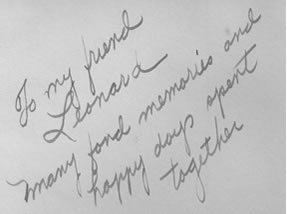 To my friend
Leonard
Many fond memories and
happy days spent
together